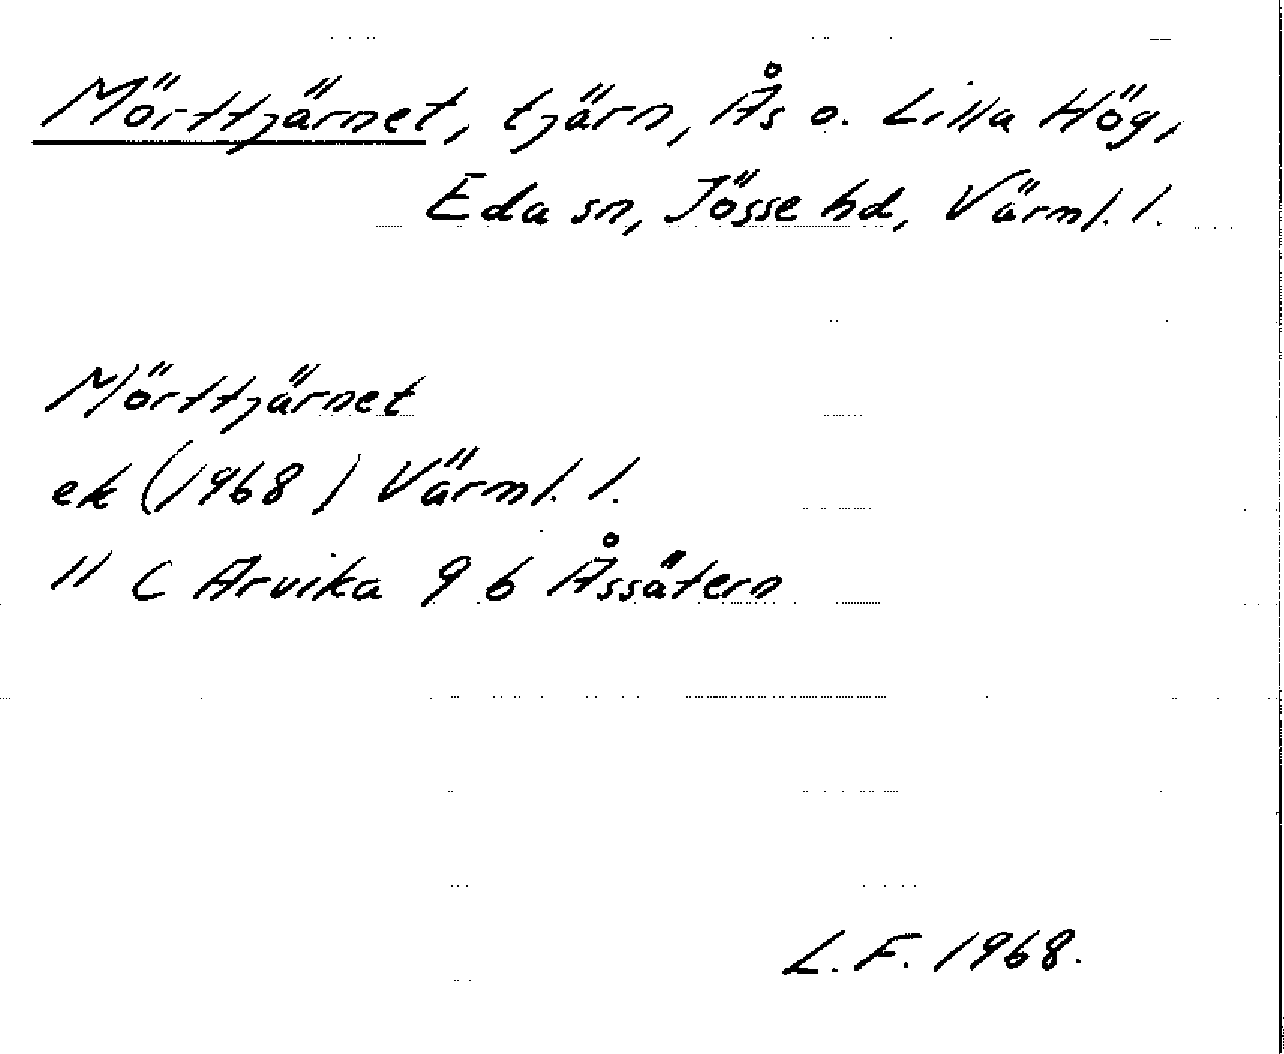 Mörttjärnet, tjärn, Ås o. Lilla Hög,
Eda sn, Jösse hd, Värml. l.
Mörttjärnet
ek (1968) Värml. l.
11 C Arvika 9 b Åssätern
L. F. 1968.